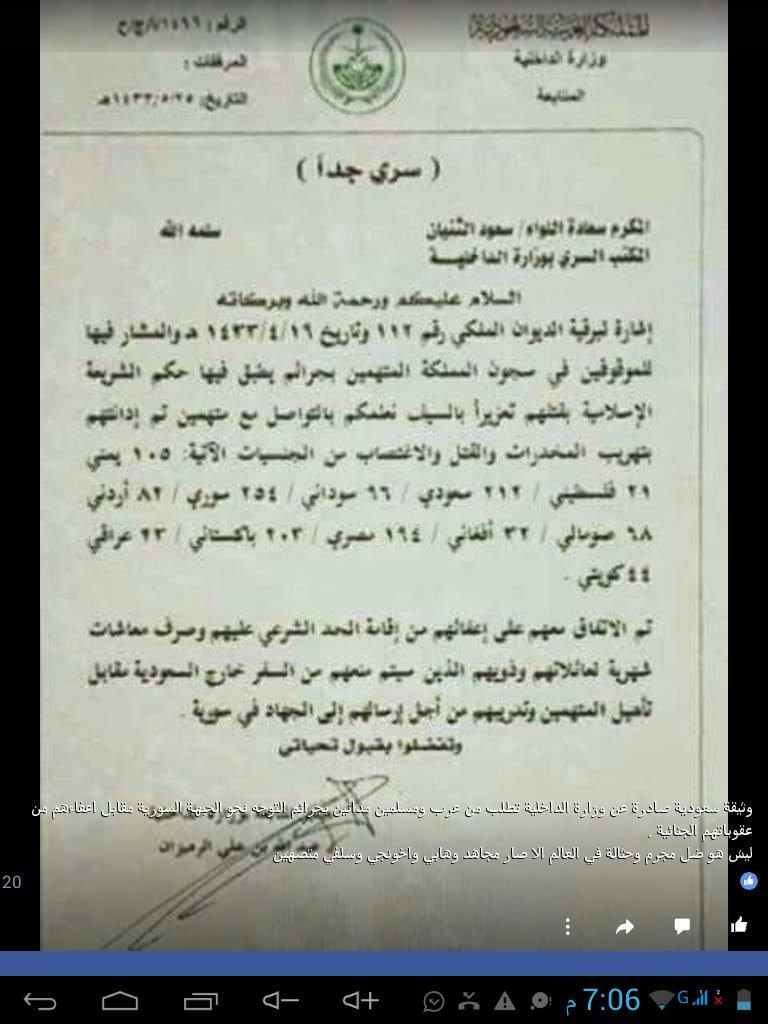 المملكة العربية السعودية
وزارة الداخلية
المتابعة
الرقم :
المرفقات :
التاريخ: ١٤٣٣/٥/٢٥هـ
( سري جداً )
المكرم سعادة اللواء/ سعود الثنيان سلمه الله
المكتب السري بوزارة الداخلية
السلام عليكم ورحمة الله وبركاته
إشارة لبرقية الديوان الملكي رقم ١١٢ وتاريخ ١٤٣٣/٤/١٩ هـ والمشار فيها
للموقوفين في سجون المملكة المتهمين بجرائم يطبق فيها حكم الشريعة
الإسلامية بقتلهم تعزيراً بالسيف نعلمكم بالتواصل مع متهمين تم إدانتهم
بتهريب المخدرات والقتل والاغتصاب من الجنسيات الآتية: ١٠٥ يمني
٢١ فلسطيني / ٢١٢ سعودي / ٩٦ سوداني / ٢٥٤ سوري / ٨٢ أردني
٦٨ صومالي / ٣٢ أفغاني / ١٩٤ مصري / ٢٠٣ باكستاني / ٢٣ عراقي
٤٤ كويتي .
تم الاتفاق معهم على إعفائهم من إقامة الحد الشرعي عليهم وصرف معاشات
شهرية لعائلاتهم وذويهم الذين سيتم منعهم من السفر خارج السعودية مقابل
تأهيل المتهمين وتدريبهم من أجل إرسالهم إلى الجهاد في سورية .
وتفضلوا بقبول تحياتي
بن علي الرميزان
وثيقة سعودية صادرة عن وزارة الداخلية تطلب من عرب ومسلمين مدانين بجرائم التوجه نحو الجبهة السورية مقابل اعفاءهم من
عقوباتهم الجنائية .
ليش هو ضل مجرم وحثالة في العالم الا صار مجاهد وهابي واخونجي وسلفي متصهين
20
م 7:06
G